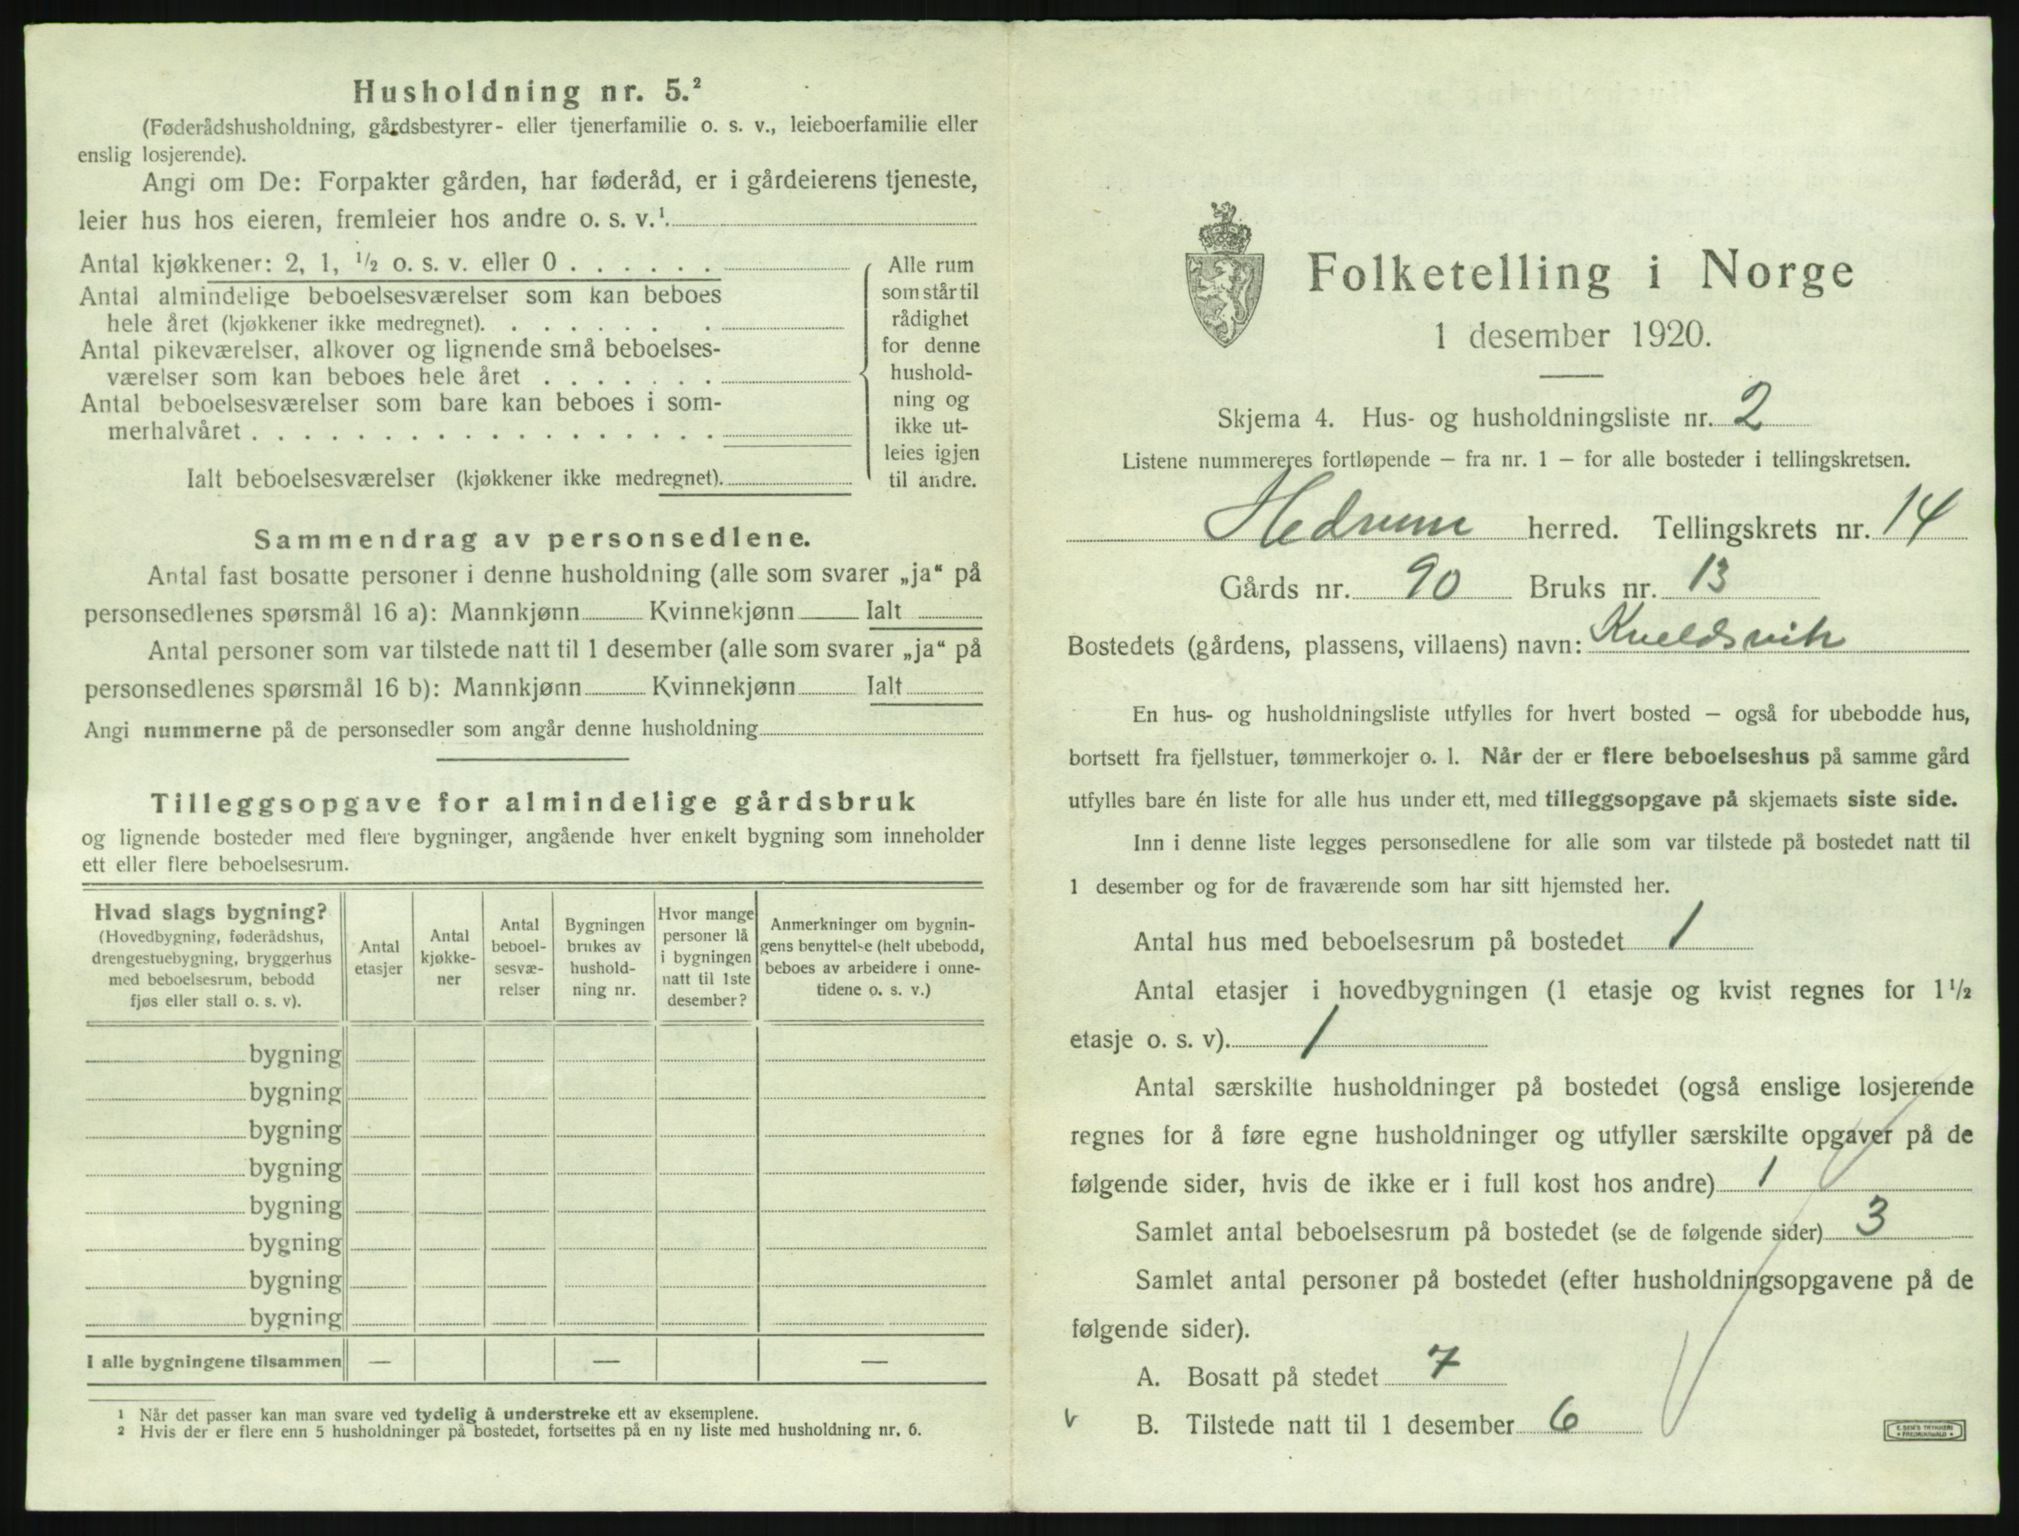 Husholdning nr. 5.²
(Føderådshusholdning, gårdsbestyrer- eller tjenerfamilie o. s. v., leieboerfamilie eller
enslig losjerende).
Angi om De: Forpakter gården, har føderåd, er i gårdeierens tjeneste,
leier hus hos eieren, fremleier hos andre o. s. v.¹.
Antal kjøkkener: 2, 1, ½ o. s. v. eller 0 . . . . . .
Antal almindelige beboelsesværelser som kan beboes
hele året (kjøkkener ikke medregnet). . . . . . . .
Antal pikeværelser, alkover og lignende små beboelses-
værelser som kan beboes hele året . . . . . . .
Antal beboelsesværelser som bare kan beboes i som-
merhalvåret . . . . . . . . . . . . . . . . . .
Ialt beboelsesværelser (kjøkkener ikke medregnet).
Alle rum
som står til
rådighet
for denne
hushold-
ning og
ikke ut-
leies igjen
til andre.
Sammendrag av personsedlene.
Antal fast bosatte personer i denne husholdning (alle som svarer „ja“ på
personsedlenes spørsmål 16 a): Mannkjønn Kvinnekjønn Ialt
Antal personer som var tilstede natt til 1 desember (alle som svarer „ja“ på
personsedlenes spørsmål 16 b): Mannkjønn Kvinnekjønn Ialt
Angi nummerne på de personsedler som angår denne husholdning
Tilleggsopgave for almindelige gårdsbruk
og lignende bosteder med flere bygninger, angående hver enkelt bygning som inneholder
ett eller flere beboelsesrum.
Hvad slags bygning?
(Hovedbygning, føderådshus,
drengestuebygning, bryggerhus
med beboelsesrum, bebodd
fjøs eller stall o. s. v).
Antal
etasjer
Antal
kjøkke-
ner
Antal
beboel-
sesvæ-
relser
Bygningen
brukes av
hushold-
ning nr.
Hvor mange
personer lå
i bygningen
natt til 1ste
desember?
Anmerkninger om bygnin-
gens benyttelse (helt ubebodd,
beboes av arbeidere i onne-
tidene o. s. v.)
bygning
bygning
bygning
bygning
bygning
bygning
bygning
bygning
I alle bygningene tilsammen — — —
¹ Når det passer kan man svare ved tydelig å understreke ett av eksemplene.
² Hvis der er flere enn 5 husholdninger på bostedet, fortsettes på en ny liste med husholdning nr. 6.
Folketelling i Norge
1 desember 1920.
Skjema 4. Hus- og husholdningsliste nr. 2
Listene nummereres fortløpende — fra nr. 1 — for alle bosteder i tellingskretsen.
Hedrum herred. Tellingskrets nr. 14
Gårds nr. 90 Bruks nr. 13
Bostedets (gårdens, plassens, villaens) navn: Kveldsvik
En hus- og husholdningsliste utfylles for hvert bosted — også for ubebodde hus,
bortsett fra fjellstuer, tømmerkojer o. l. Når der er flere beboelseshus på samme gård
utfylles bare én liste for alle hus under ett, med tilleggsopgave på skjemaets siste side.
Inn i denne liste legges personsedlene for alle som var tilstede på bostedet natt til
1 desember og for de fraværende som har sitt hjemsted her.
Antal hus med beboelsesrum på bostedet 1
Antal etasjer i hovedbygningen (1 etasje og kvist regnes for 1½
etasje o. s. v). 1
Antal særskilte husholdninger på bostedet (også enslige losjerende
regnes for å føre egne husholdninger og utfyller særskilte opgaver på de
følgende sider, hvis de ikke er i full kost hos andre) 1
Samlet antal beboelsesrum på bostedet (se de følgende sider) 3
Samlet antal personer på bostedet (efter husholdningsopgavene på de
følgende sider).
A. Bosatt på stedet 7
B. Tilstede natt til 1 desember 6